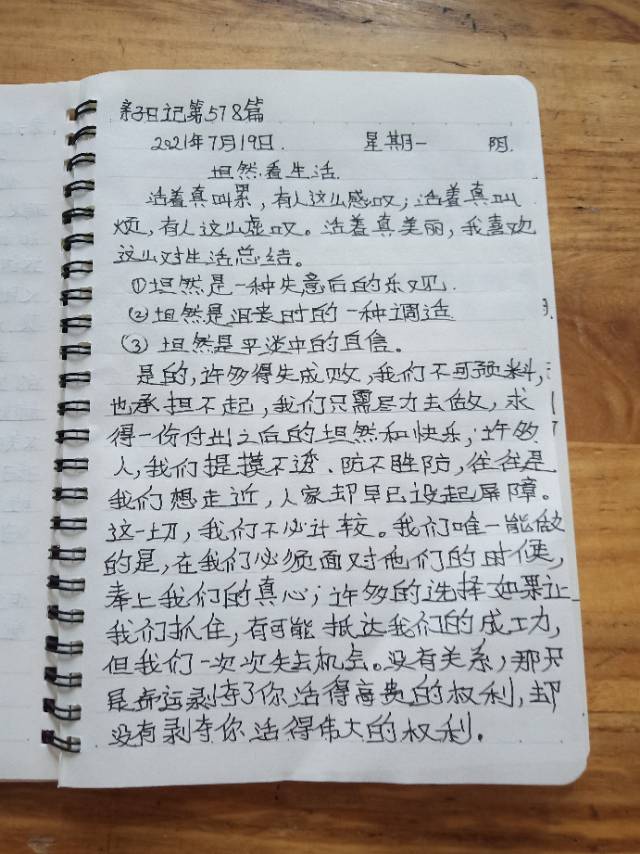 亲子日记第578篇
2021年7月19日. 星期一 阴.
坦然看生活.
活着真叫累，有人这么感叹；活着真叫
烦，有人这么感叹。活着真美丽，我喜欢
这么对生活总结。
①坦然是一种失意后的乐观.
②坦然是沮丧时的一种调适
③坦然是平淡中的自信。
是的，许多得失成败，我们不可预料，
也承担不起，我们只需尽力去做，求
得一份付出之后的坦然和快乐；许多
人，我们捉摸不透、防不胜防，往往是
我们想走近，人家却早已设起屏障。
这一切，我们不必计较。我们唯一能做
的是，在我们必须面对他们的时候，
奉上我们的真心；许多的选择如果让
我们抓住，有可能抵达我们的成功，
但我们一次次失去机会。没有关系，那只
是命运剥夺了你活得高贵的权利，却
没有剥夺你活得伟大的权利。